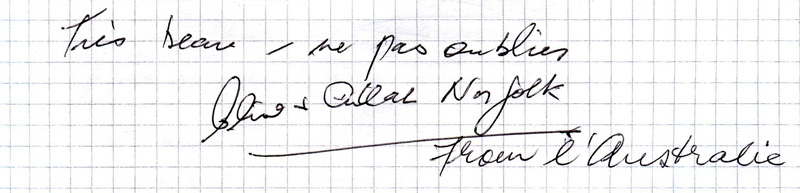 Très beau, ne pas oublier
Clive & Norfolk
from l'Australie